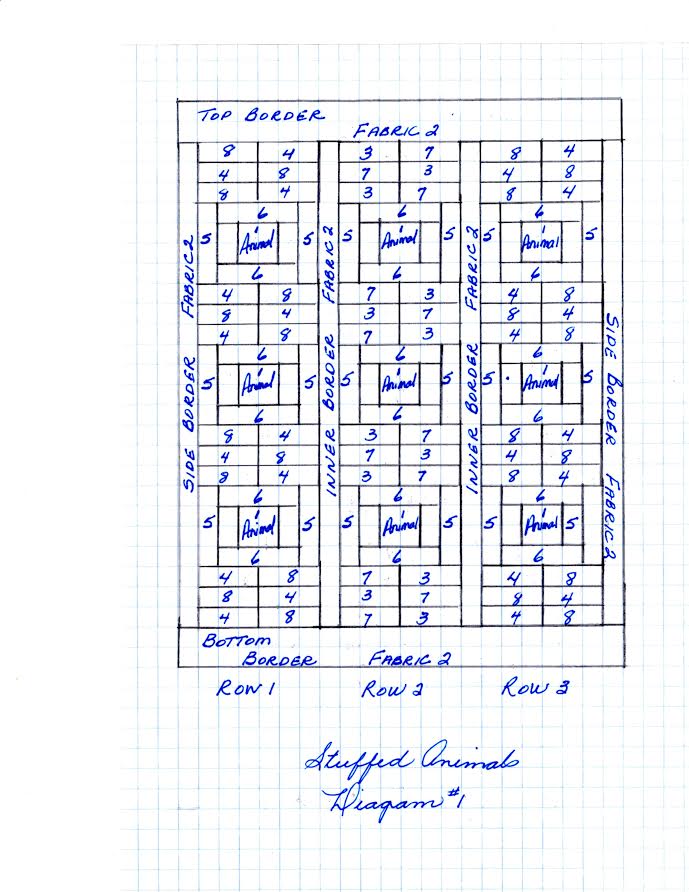 TOP BORDER
FABRIC 2
8 4 3 7 8 4
4 8 7 3 4 8
8 4 3 7 8 4
6 6 6
5 Animal 5 5 Animal 5 5 Animal 5
6 6 6
4 8 7 3 4 8
8 4 3 7 8 4
4 8 7 3 4 8
6 6 6
5 Animal 5 5 Animal 5 5 Animal 5
6 6 6
8 4 3 7 8 4
4 8 7 3 4 8
8 4 3 7 8 4
6 6 6
5 Animal 5 5 Animal 5 5 Animal 5
6 6 6
4 8 7 3 4 8
8 4 3 7 8 4
4 8 7 3 4 8
SIDE BORDER FABRIC 2
INNER BORDER FABRIC 2
INNER BORDER FABRIC 2
SIDE BORDER FABRIC 2
BOTTOM
BORDER FABRIC 2
ROW 1 ROW 2 ROW 3
Stuffed Animals
Diagram #1